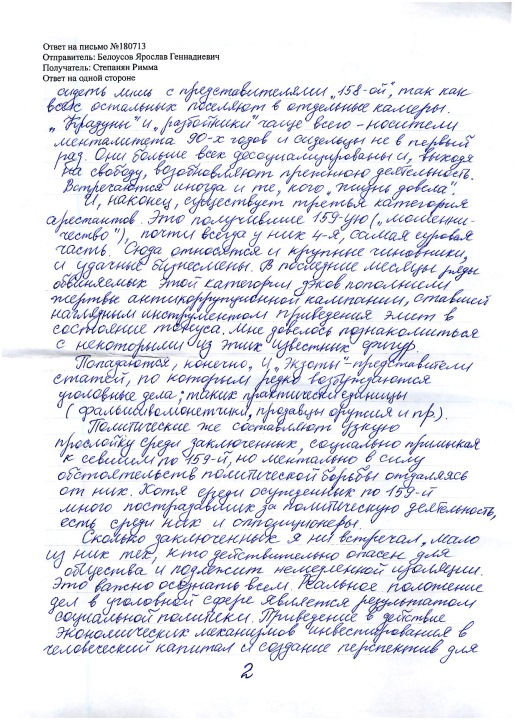 Ответ на письмо №180713
Отправитель: Белоусов Ярослав Геннадиевич
Получатель: Степанян Римма
Ответ на одной стороне
сидеть лишь с представителями „158-ой", так как
всех остальных поселяют в отдельные камеры.
„Крадуны" и „разбойники" чаще всего – носители
менталитета 90-х годов и сидельцы не в первый
раз. Они больше всех десоциализированы и, выходя
на свободу, возобновляют прежнюю деятельность.
Встречаются иногда и те, кого „жизнь довела".
И, наконец, существует третья категория
арестантов. Это получившие 159-ую („мошенни-
чество"), почти всегда у них 4-я, самая суровая
часть. Сюда относятся и крупные чиновники,
и удачные бизнесмены. В последние месяцы ряды
обвиняемых этой категории зэков пополнили
жертвы антикоррупционной кампании, ставшей
наглядным инструментом приведения элит в
состояние тонуса. Мне довелось познакомиться
с некоторыми из этих известных фигур.
Попадаются, конечно, и „экзоты" – представители
статей, по которым редко возбуждаются
уголовные дела; таких практически единицы
(фальшивомонетчики, продавцы оружия и пр).
Политические же составляют узкую
прослойку среди заключенных, социально примыкая
к севшим по 159-й, но ментально в силу
обстоятельств политической борьбы отдаляясь
от них. Хотя среди осужденных по 159-й
много пострадавших за политическую деятельность,
есть среди них и оппозиционеры.
Сколько заключенных я ни встречал, мало
из них тех, кто действительно опасен для
общества и подлежит немедленной изоляции.
Это важно осознать всем. Реальное положение
дел в уголовной сфере является результатом
социальной политики. Приведение в действие
экономических механизмов инвестирования в
человеческий капитал и создание перспектив для
2